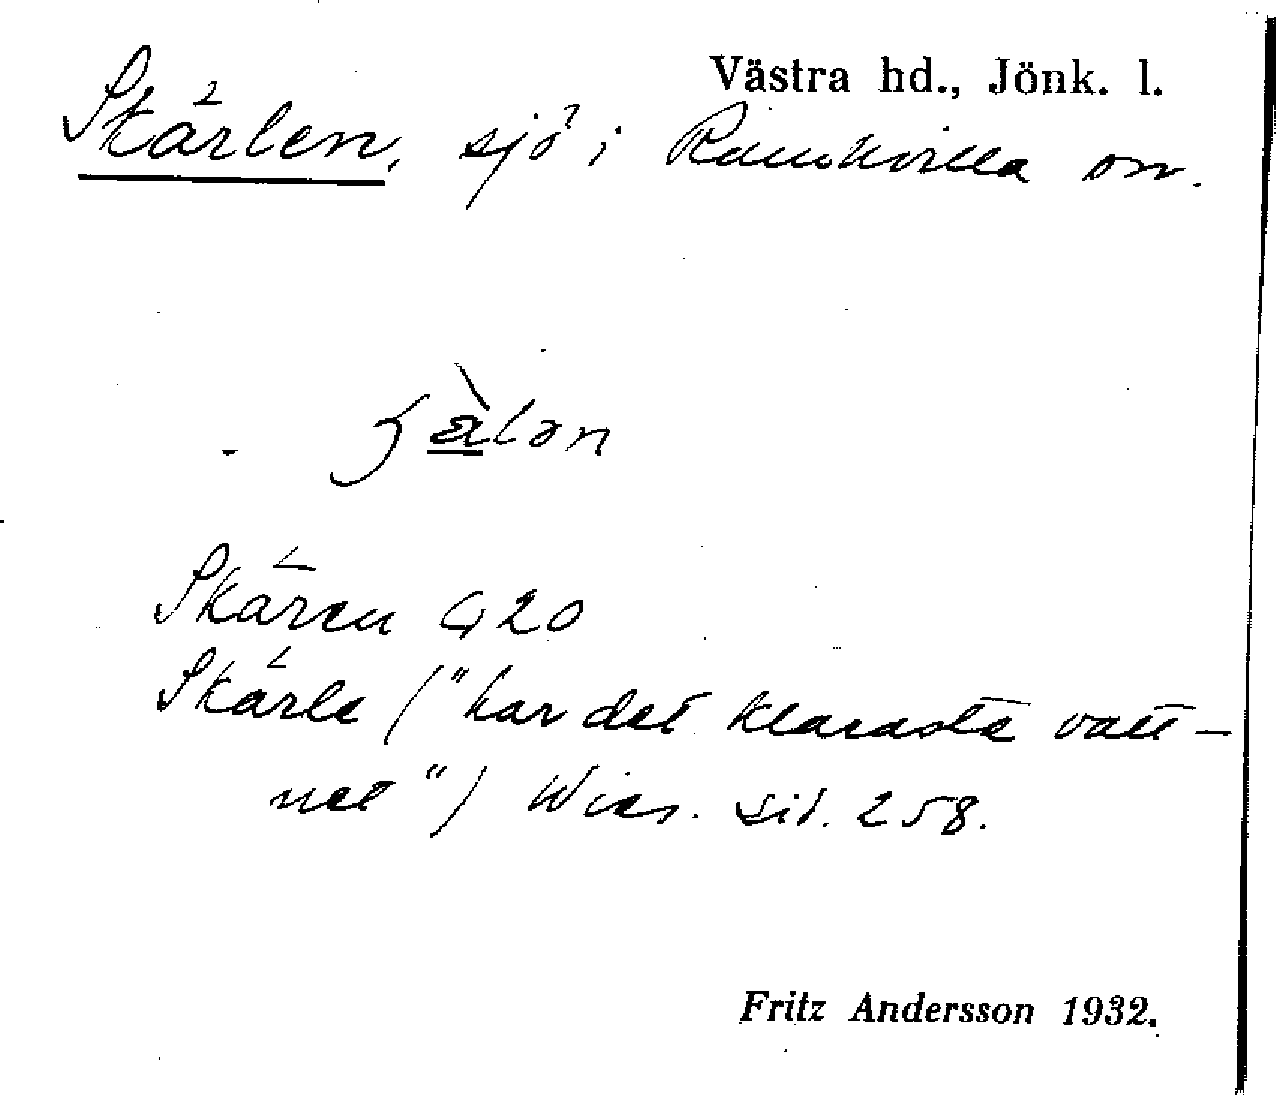 Västra hd., Jönk. l.
Skärlen, sjö i Ramkvilla sn.
Skären G 20
Skärle ("har det klaraste vatt-
net") Wies. sid. 258.
Fritz Andersson 1932.